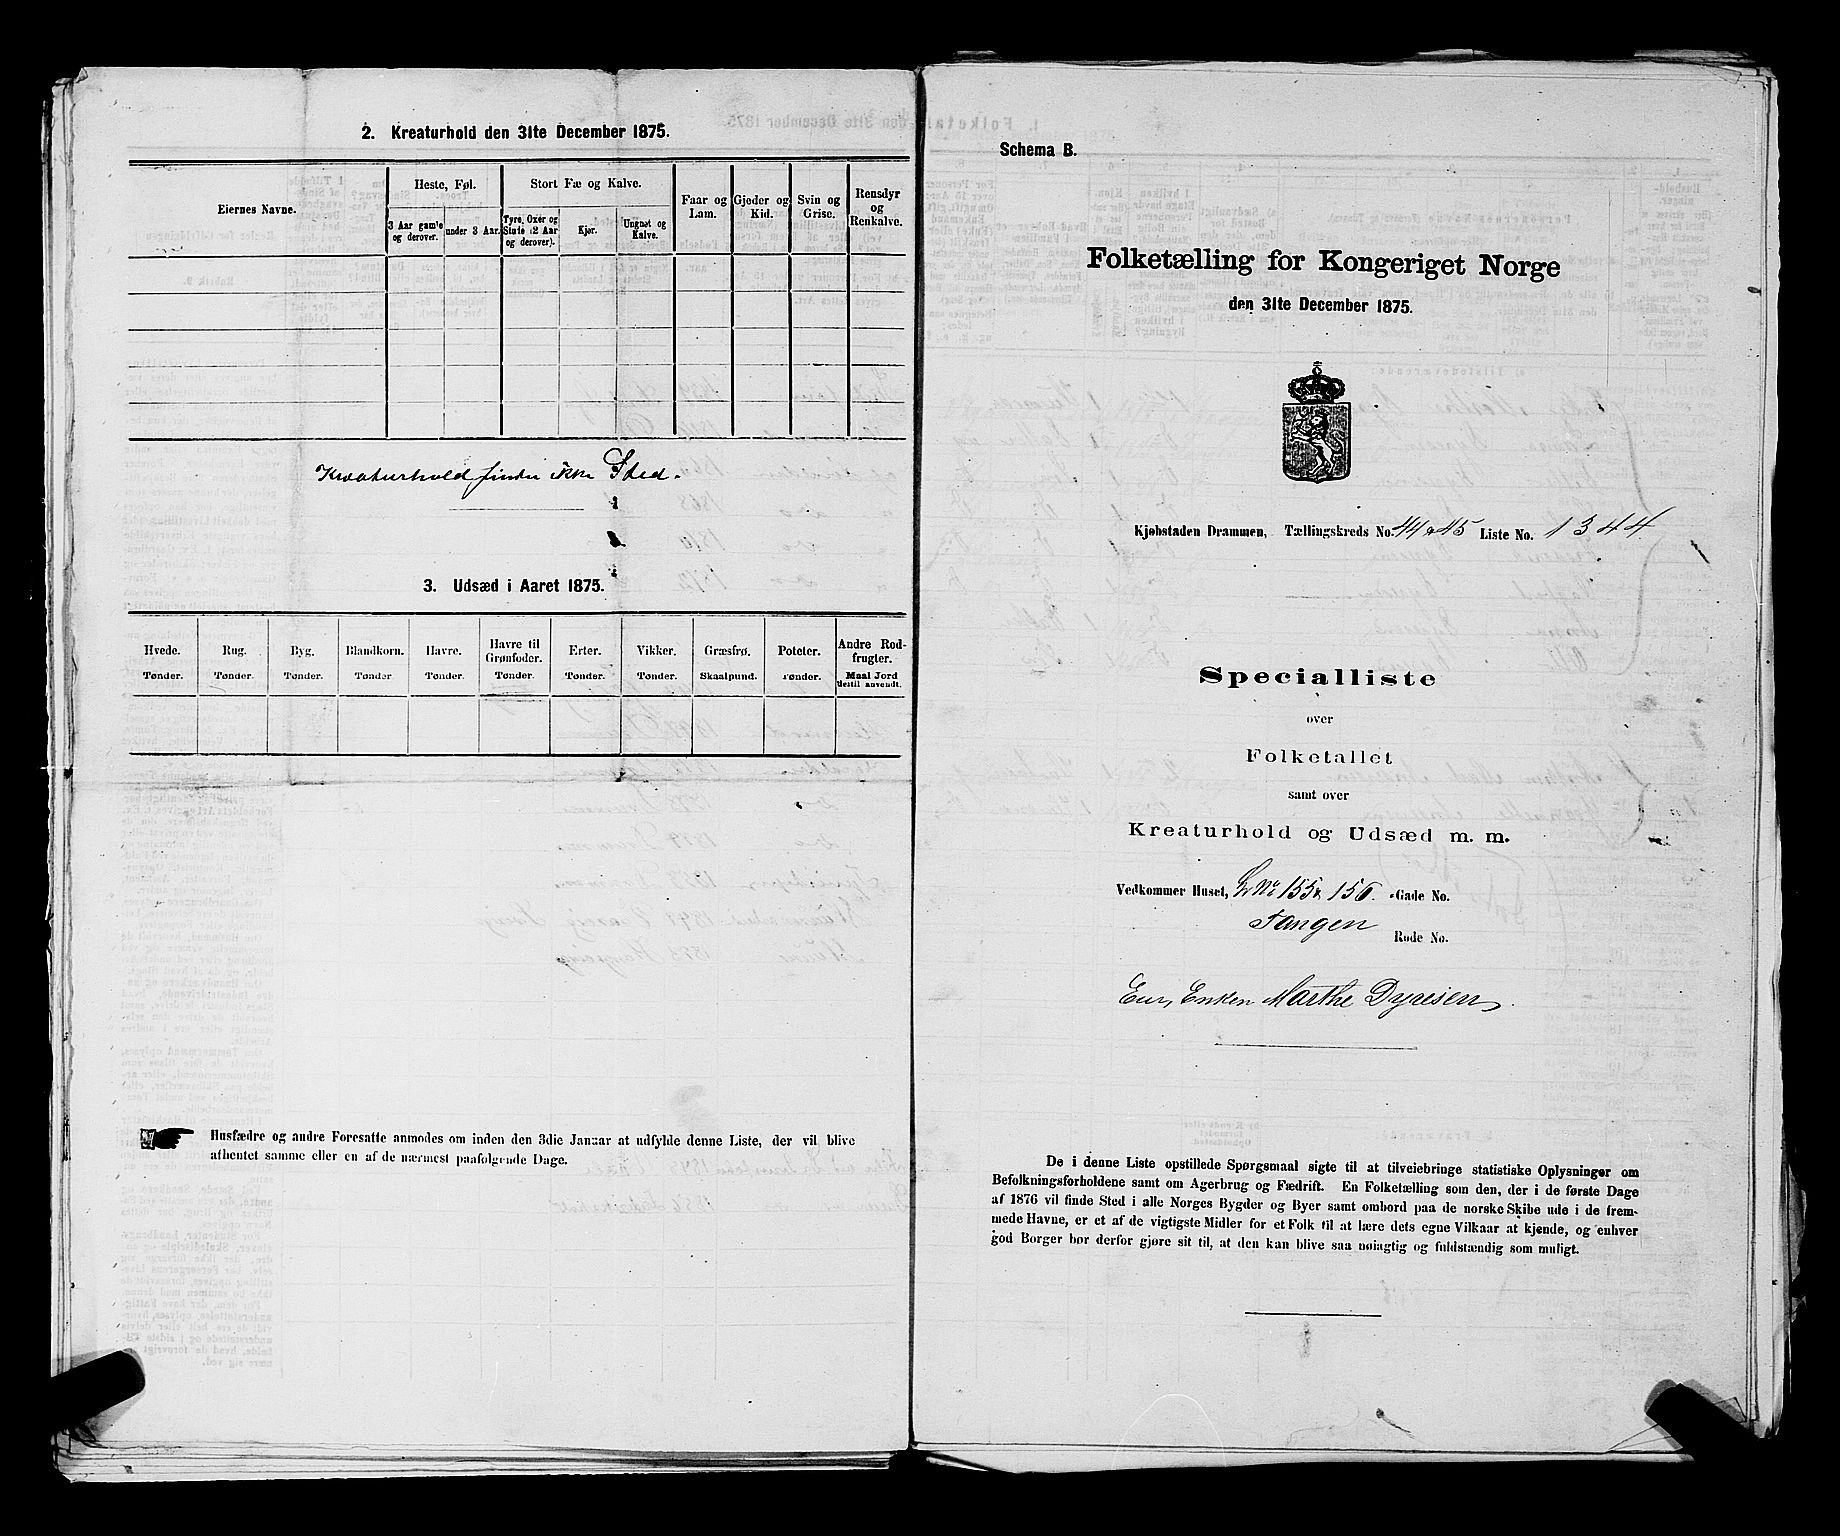 2. Kreaturhold den 31te December 1875.
Eiernes Navne.
Heste, Føl.
3 Aar gamle og derover.
under 3 Aar.
Stort Fæ og Kalve.
Tyre, Oxer og Stute (2 Aar og derover).
Kjør.
Ungnøt og Kalve.
Faar og Lam.
Gjeder og Kid.
Svin og Grise.
Rensdyr og Renkalve.
Kreaturhold finder ikke Sted.
3. Udsæd i Aaret 1875.
Hvede. Rug. Byg. Blandkorn. Havre. Havre til Grønfoder. Erter. Vikker. Græsfrø. Poteter. Andre Rodfrugter.
Tønder. Tønder. Tønder. Tønder Tønder. Tønder. Tønder. Tønder. Skaalpund. Tønder. Maal Jord dertil anvendt.
Husfædre og andre Foresatte anmodes om inden den 3die Januar at udfylde denne Liste, der vil blive
afhentet samme eller en af de nærmest paafølgende Dage.
Schema B.
Folketælling for Kongeriget Norge
den 31te December 1875.
Kjøbstaden Drammen, Tællingskreds No. 44 & 45 Liste No. 1344
Specialliste
over
Folketallet
samt over
Kreaturhold og Udsæd m. m.
Vedkommer Huset, L No 155 & 156. Gade No.
Tangen
Rode No.
Eier, Enken Marthe Dyresen
De i denne Liste opstillede Spørgsmaal sigte til at tilveiebringe statistiske Oplysninger om
Befolkningsforholdene samt om Agerbrug og Fædrift. En Folketælling som den, der i de første Dage
af 1876 vil finde Sted i alle Norges Bygder og Byer samt ombord paa de norske Skibe ude i de frem-
mede Havne, er et af de vigtigste Midler for et Folk til at lære dets egne Vilkaar at kjende, og enhver
god Borger bør derfor gjøre sit til, at den kan blive saa nøiagtig og fuldstændig som muligt.